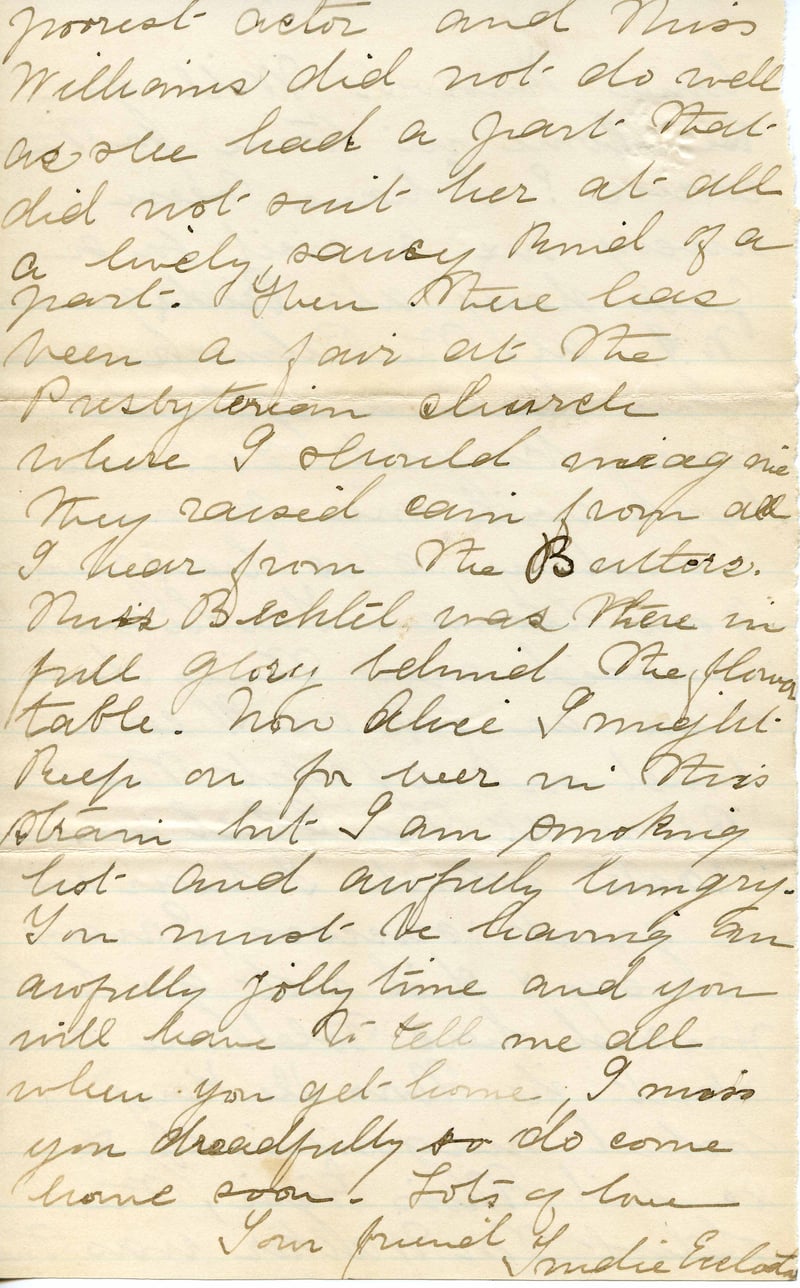 poorest actor and Miss
Williams did not do well
as she had a part that
did not suit her at all
a lively, saucy kind of a
part. Then there has
been a fair at the
Presbyterian church
where I should imagine
they raised cain from all
I hear from the Butters.
Miss Bechtel was there in
full glory behind the flower
table. Now Alice I might
keep on for ever in this
strain but I am smoking
hot and awfully hungry.
You must be having an
awfully jolly time and you
will have to tell me all
when you get home, I miss
you dreadfully so do come
home soon. Lots of love
Your friend